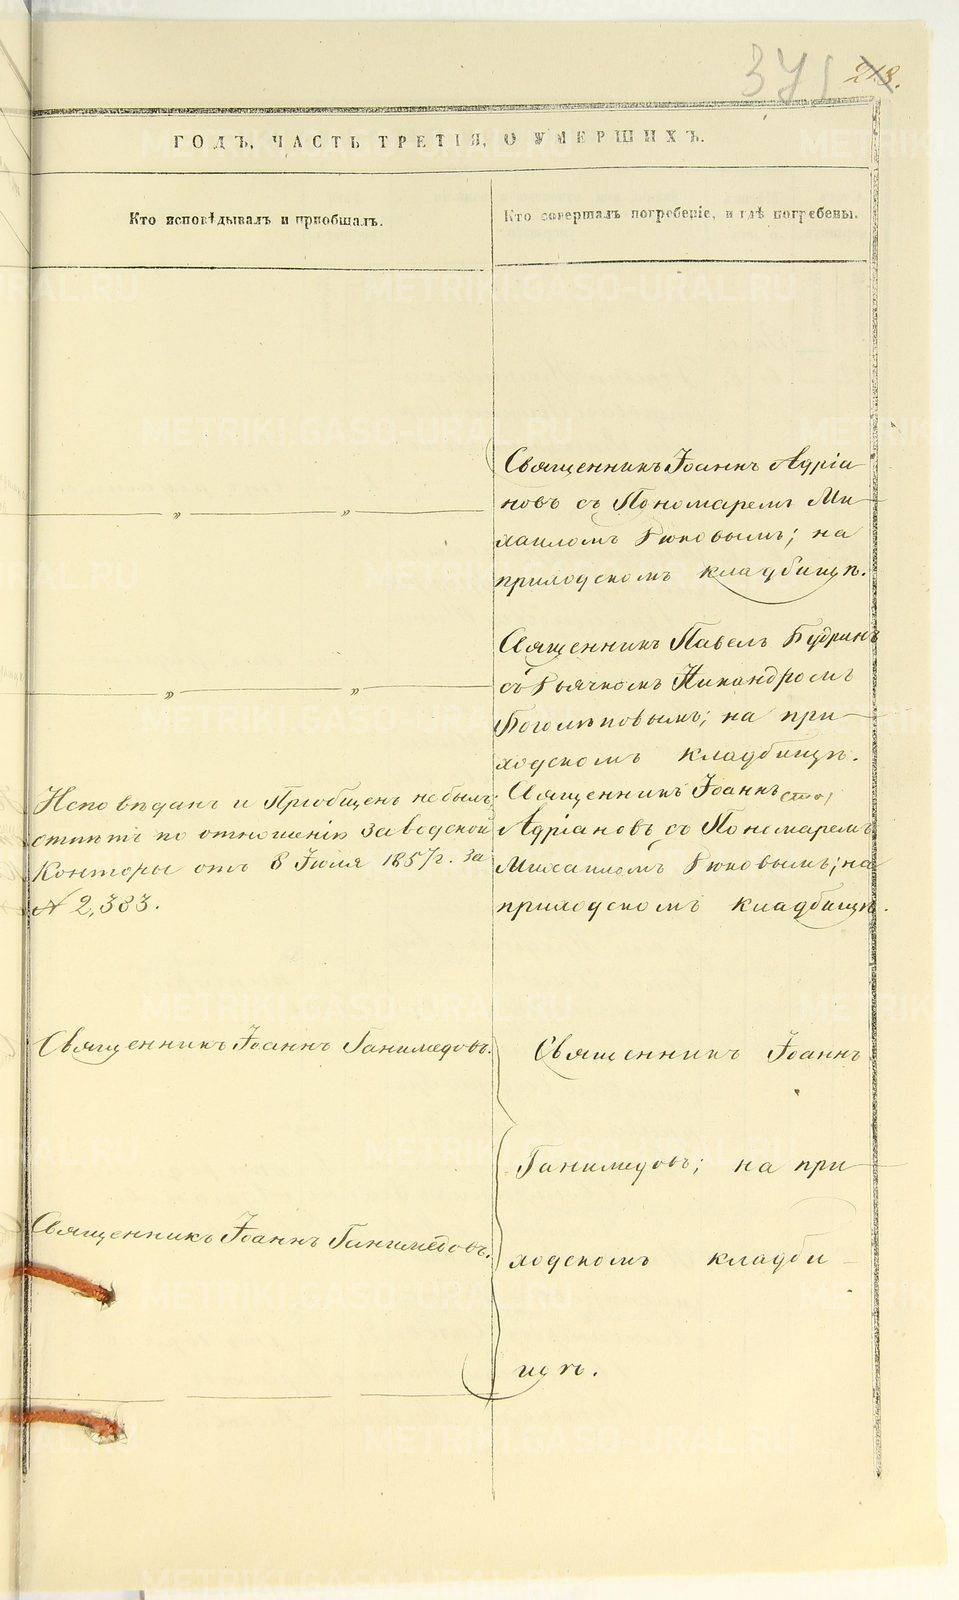 371 218.
ГОДЪ, ЧАСТЬ ТРЕТІЯ, О УМЕРШИХЪ.
Кто исповѣдывалъ и пріобщалъ.
Кто совершалъ погребеніе, и гдѣ погребены.
Священникъ Іоаннъ Адріа-
новъ съ Пономаремъ Ми-
хаиломъ Рюковымъ; на
приходскомъ кладбищѣ.
Священникъ Павелъ Будринъ
съ Дьячкомъ Никандромъ
Боголѣповымъ; на при-
ходскомъ кладбищѣ.
Исповѣданъ и Пріобщенъ не былъ;
отпѣтъ по отношенію Заводской
Конторы отъ 8 Іюля 1857 г. за
№ 2,383.
Священникъ Іоаннъ
Адріановъ съ Пономаремъ
Михаиломъ Рюковымъ; на
приходскомъ кладбищѣ.
Священникъ Іоаннъ Ганимедовъ.
Священникъ Іоаннъ Ганимедовъ.
Священникъ Іоаннъ
Ганимедовъ; на при-
ходскомъ кладби-
щѣ.
METRIKI.GASO-URAL.RU